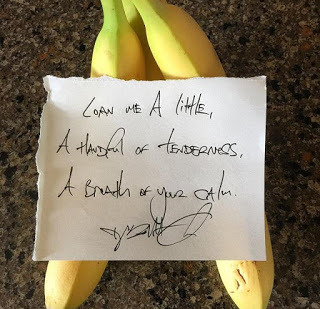 LOAN ME A little,
A HANDful of TENDERNESS,
A BREATH of YOUR CALM.